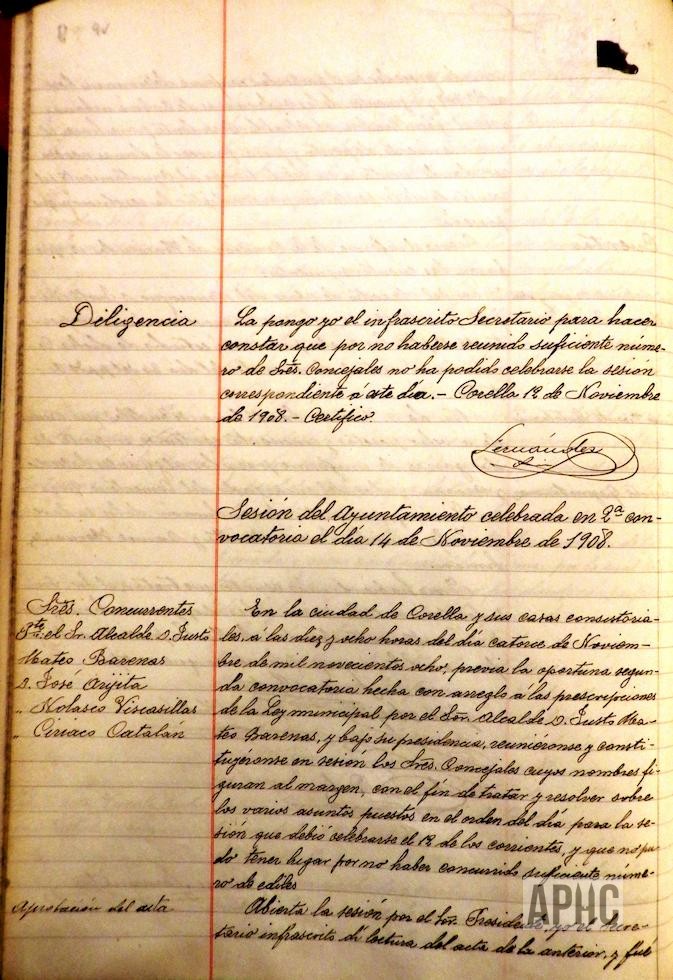 Diligencia
La pongo yo el infrascrito Secretario para hacer
constar que por no haberse reunido suficiente núme-
ro de Sres. Concejales no ha podido celebrarse la sesion
correspondiente á este día. - Corella 12 de Noviembre
de 1908. - Certifico.
Fernández
Sesión del Ayuntamiento celebrada en 2ª con-
vocatoria el día 14 de Noviembre de 1908.
Sres. Concurrentes
Pte. el Sr. Alcalde D. Justo
Mateo Barenas
D. José Arijita
" Nolasco Viscasillas
" Ciriaco Catalán
En la ciudad de Corella y sus casas consistoria-
les, á las diez y ocho horas del día catorce de Noviem-
bre de mil novecientos ocho, previa la oportuna segun-
da convocatoria hecha con arreglo á las prescripciones
de la Ley municipal por el Sor. Alcalde D. Justo Ma-
teo Barenas, y bajo su presidencia, reuniéronse y consti-
tuyéronse en sesión los Sres. Concejales cuyos nombres fi-
guran al margen, con el fin de tratar y resolver sobre
los varios asuntos puestos en el orden del día para la se-
sión que debió celebrarse el 12 de los corrientes, y que no pu-
do tener lugar por no haber concurrido suficiente núme-
ro de ediles
Aprobación del acta
Abierta la sesión por el Sor. Presidente, yo el Secre-
tario infrascrito di lectura del acta de la anterior, y fué
APHC